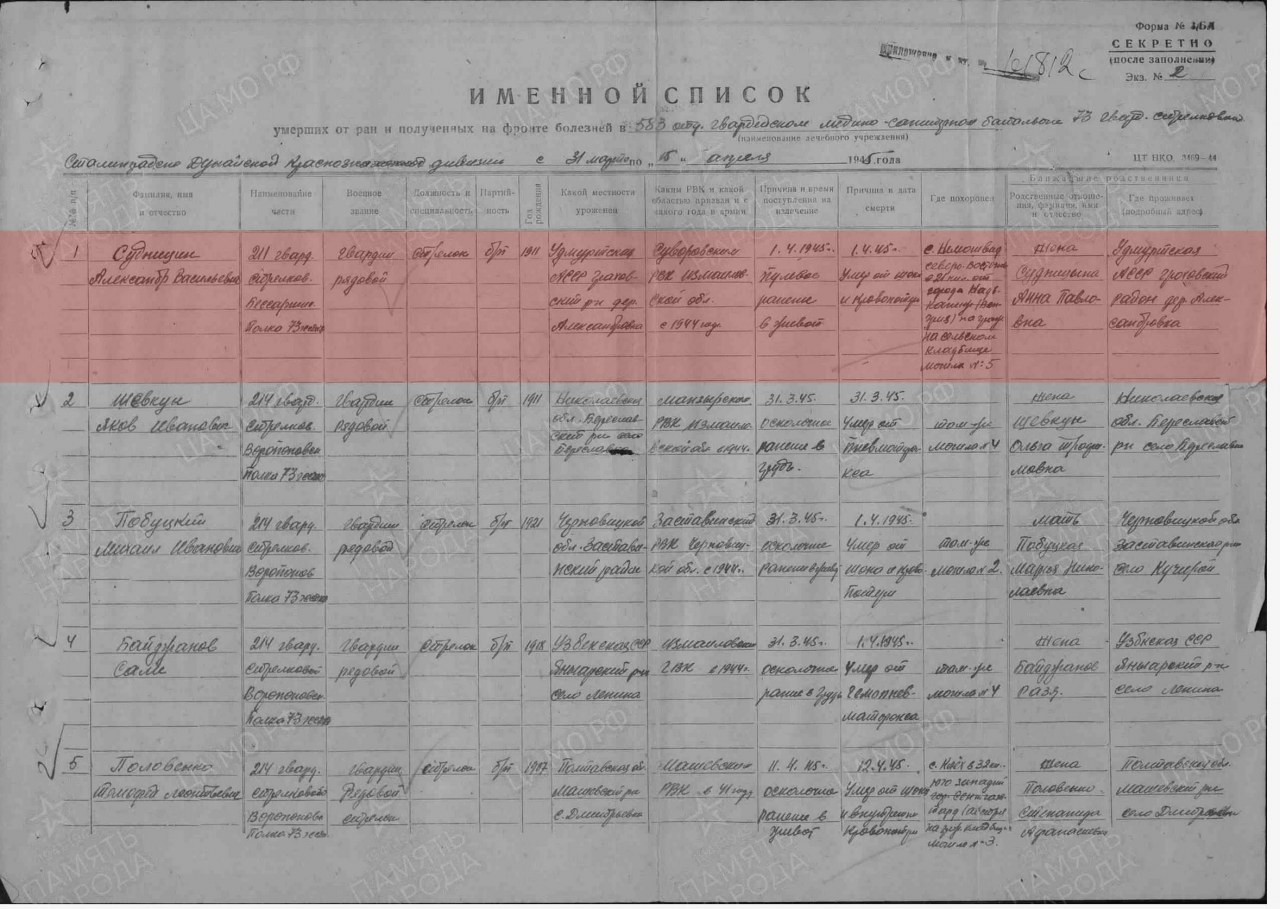 Форма № 16А
СЕКРЕТНО
(после заполнения)
Экз. № 2
ИМЕННОЙ СПИСОК
умерших от ран и полученных на фронте болезней в 583 отд. гвардейском медико-санитарном батальоне 73 гвард. стрелковой
(наименование лечебного учреждения)
Сталинградско Дунайской Краснознаменной дивизии с 31 марта по „15“ апреля 1945 года
ЦТ НКО.
№№ п/п
Фамилия, имя и отчество
Наименование части
Военное звание
Должность и специальность
Партийность
Год рождения
Какой местности уроженец
Каким РВК и какой областью призван и с какого года в армии
Причина и время поступления на излечение
Причина и дата смерти
Где похоронен
Ближайшие родственники
Родственные отношения, фамилия, имя и отчество
Где проживают (подробный адрес)
1
Судницин
Александр Васильевич
211 гвард.
стрелков.
Бессарабск.
Полка 73
гвардии
рядовой
стрелок
б/п
1911
Удмуртская
АССР
ский р-н дер.
Александровка
Суворовским
РВК Измаиль-
ской обл.
с 1944 год
1.4.1945г.
Пулевое
ранение
в живот
1.4.45г.
Умер от шока
и кровопотери
северо-восточ
города
на сельском
кладбище
могила № 5
Жена
Судницына
Анна Павло-
вна
Удмуртская
АССР Граховский
район дер. Алек-
сандровка
2
Шевкун
Яков Иванович
214 гвард.
стрелков.
Воропоновск
Полка 73
гвардии
рядовой
стрелок
б/п
1911
Николаевская
обл. Береслав
ский р-н село
Береслав
РВК Измаи-
ской обл с 1944г.
31.3.45г.
осколочное
ранение в
грудь.
31.3.45.
Умер от
Пневмоторакса
там-же
могила № 4
Жена
Шевкун
Ольга Трофи-
мовна
Николаевская
обл. Береславский
р-н село Береславль
3
Побуцкий
Михаил Иванович
214 гвард.
стрелков.
Воропонов
Полка 73
гвардии
рядовой
стрелок
б/п
1921
Черновицкой
обл. Застав-
нский район
Заставнинский
РВК Черновиц-
кой обл. с 1944г.
31.3.45г.
осколочное
ранение
1.4.1945г.
Умер от
шока и крово
потери
там-же
могила № 2.
Мать
Побуцкая
Мария Нико-
лаевна
Черновицкой обл
Заставнинского р-н
село
4
Байджанов
Сали
214 гвард.
стрелковой
Воропоновск
Полка 73
гвардии
рядовой
стрелок
б/п
Узбекская ССР
Янгиарский р-н
село Ленина
Измаильским
ГВК с 1944г.
31.3.45г.
осколочное
ранение в грудь
1.4.1945г.
Умер от
там-же
могила № 4
Жена
Байджанов
Узбекская ССР
Янгиарский р-н
село Ленина
5
Половенко
Тимофей Леонтьевич
214 гвард.
стрелковой
Воропоново
Полка 73
гвардии
рядовой
стрелок
стрелок
б/п
1907
Полтавская об.
Машевский р-н
с. Дмитровка
Машевским
РВК в 41 году
11.4.45г.
осколочное
ранение в
живот
12.4.45г.
Умер от шока
и внутреннего
могила № 3.
Жена
Половенко
Степанида
Афанасьевна
Полтавская обл.
Машевский р-н
село Дмитровка
ЦАМО.РФ
ПАМЯТЬ НАРОДА